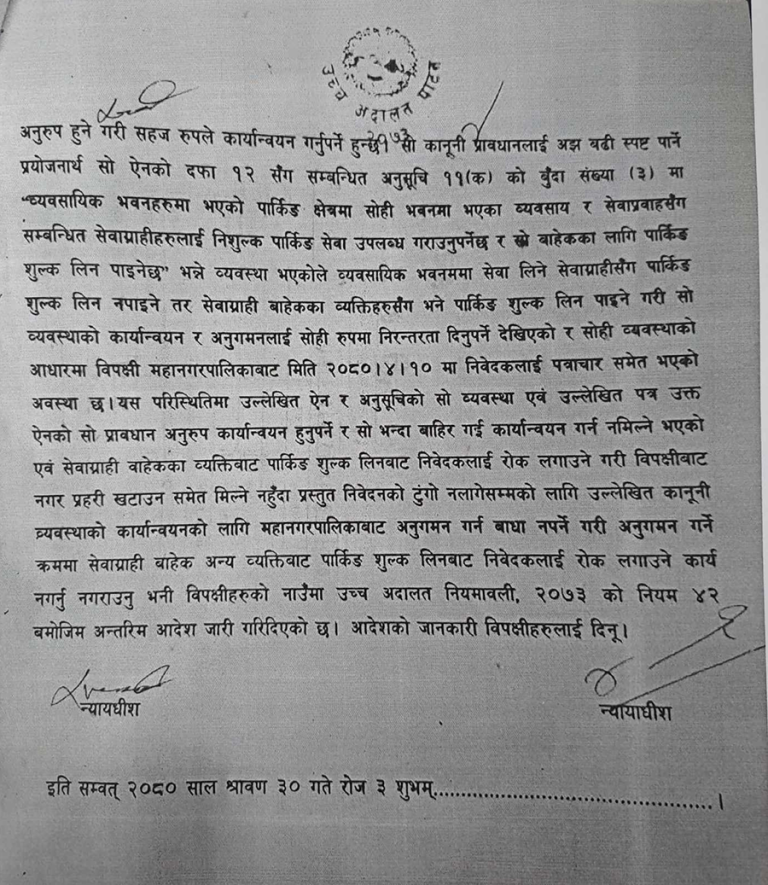 उच्च अदालत पाटन
२०७३
अनुरुप हुने गरी सहज रुपले कार्यान्वयन गर्नुपर्ने हुन्छ। सो कानूनी प्रावधानलाई अझ बढी स्पष्ट पार्ने
प्रयोजनार्थ सो ऐनको दफा १२ सँग सम्बन्धित अनुसूचि ११(क) को बुँदा संख्या (३) मा
"व्यवसायिक भवनहरुमा भएको पार्किङ क्षेत्रमा सोही भवनमा भएका व्यवसाय र सेवाप्रवाहसँग
सम्बन्धित सेवाग्राहीहरुलाई निशुल्क पार्किङ सेवा उपलब्ध गराउनुपर्नेछ र सो बाहेकका लागि पार्किङ
शुल्क लिन पाइनेछ" भन्ने व्यवस्था भएकोले व्यवसायिक भवनममा सेवा लिने सेवाग्राहीसँग पार्किङ
शुल्क लिन नपाइने तर सेवाग्राही बाहेकका व्यक्तिहरुसँग भने पार्किङ शुल्क लिन पाइने गरी सो
व्यवस्थाको कार्यान्वयन र अनुगमनलाई सोही रुपमा निरन्तरता दिनुपर्ने देखिएको र सोही व्यवस्थाको
आधारमा विपक्षी महानगरपालिकाबाट मिति २०८०।४।१० मा निवेदकलाई पत्राचार समेत भएको
अवस्था छ।यस परिस्थितिमा उल्लेखित ऐन र अनुसूचिको सो व्यवस्था एवं उल्लेखित पत्र उक्त
ऐनको सो प्रावधान अनुरुप कार्यान्वयन हुनुपर्ने र सो भन्दा बाहिर गई कार्यान्वयन गर्न नमिल्ने भएको
एवं सेवाग्राही वाहेकका व्यक्तिबाट पार्किङ शुल्क लिनबाट निवेदकलाई रोक लगाउने गरी विपक्षीबाट
नगर प्रहरी खटाउन समेत मिल्ने नहुँदा प्रस्तुत निवेदनको टुंगो नलागेसम्मको लागि उल्लेखित कानूनी
व्यवस्थाको कार्यान्वयनको लागि महानगरपालिकाबाट अनुगमन गर्न बाधा नपर्ने गरी अनुगमन गर्ने
क्रममा सेवाग्राही बाहेक अन्य व्यक्तिबाट पार्किङ शुल्क लिनबाट निवेदकलाई रोक लगाउने कार्य
नगर्नु नगराउनु भनी विपक्षीहरुको नाउँमा उच्च अदालत नियमावली, २०७३ को नियम ४२
बमोजिम अन्तरिम आदेश जारी गरिदिएको छ। आदेशको जानकारी विपक्षीहरुलाई दिनू।
न्यायधीश
न्यायाधीश
इति सम्वत् २०८० साल श्रावण ३० गते रोज ३ शुभम्..................................................।